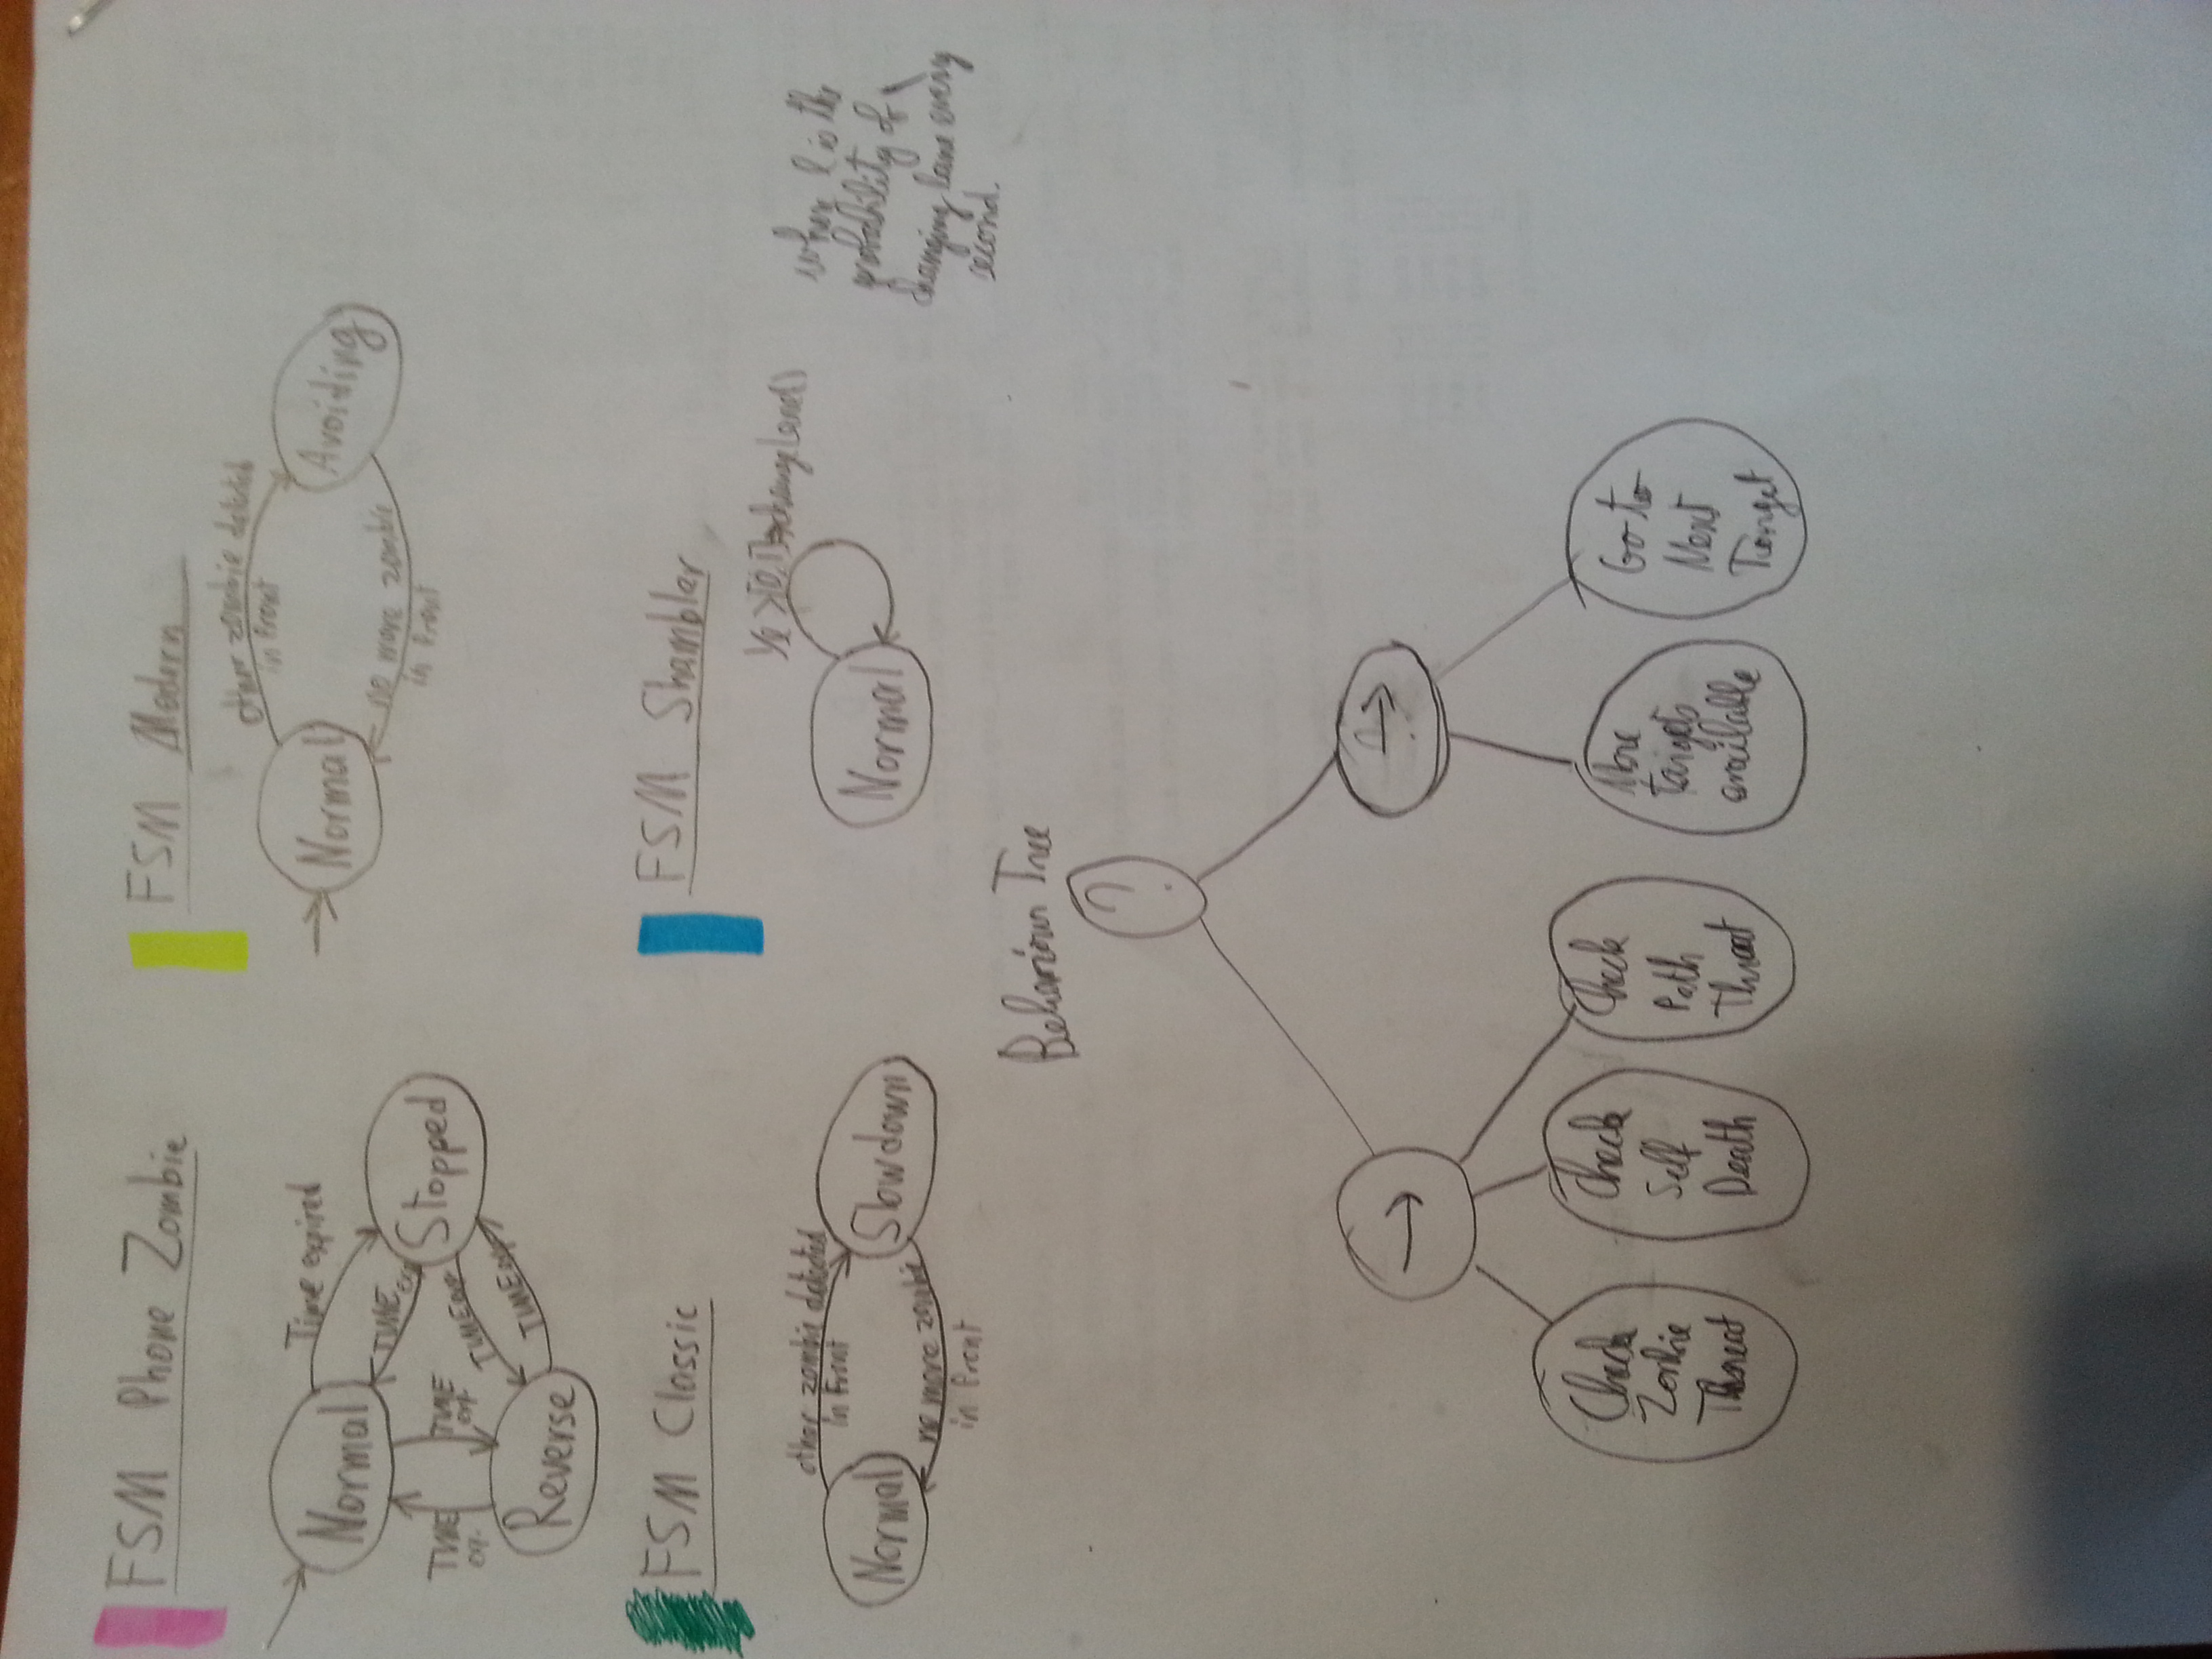 FSM Phone Zombie
Normal
Time expired
TIME exp
Stopped
TIME exp.
TIME exp.
TIME exp
TIME exp
Reverse
FSM Modern
other zombie detected
in front
Normal
Avoiding
no more zombie
in front
FSM Classic
other zombie detected
in front
Normal
Slowdown
no more zombie
in front
FSM Shambler
changeLane()
Normal
where l is the
probability of
changing lane every
second.
Behaviour Tree
?
→
→
Check
Zombie
Threat
Check
Self
Death
Check
Path
Threat
More
targets
available
Go to
Next
Target